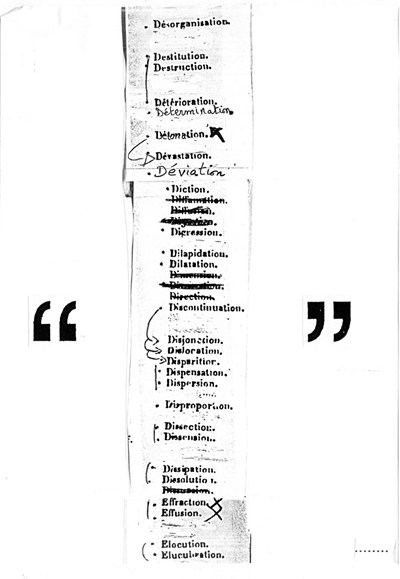 Désorganisation.
Destitution.
Destruction.
Détérioration.
Détermination
Détonation.
Dévastation.
Déviation
Diction.
Diffamation.
Digression.
Dilapidation.
Dilatation.
Dimension.
Direction.
Discontinuation.
“ ”
Disjonction.
Dislocation.
Disparition.
Dispensation.
Dispersion.
Disproportion.
Dissection.
Dissension.
Dissipation.
Dissolution.
Effraction.
Effusion.
Elocution.
Elucubration.